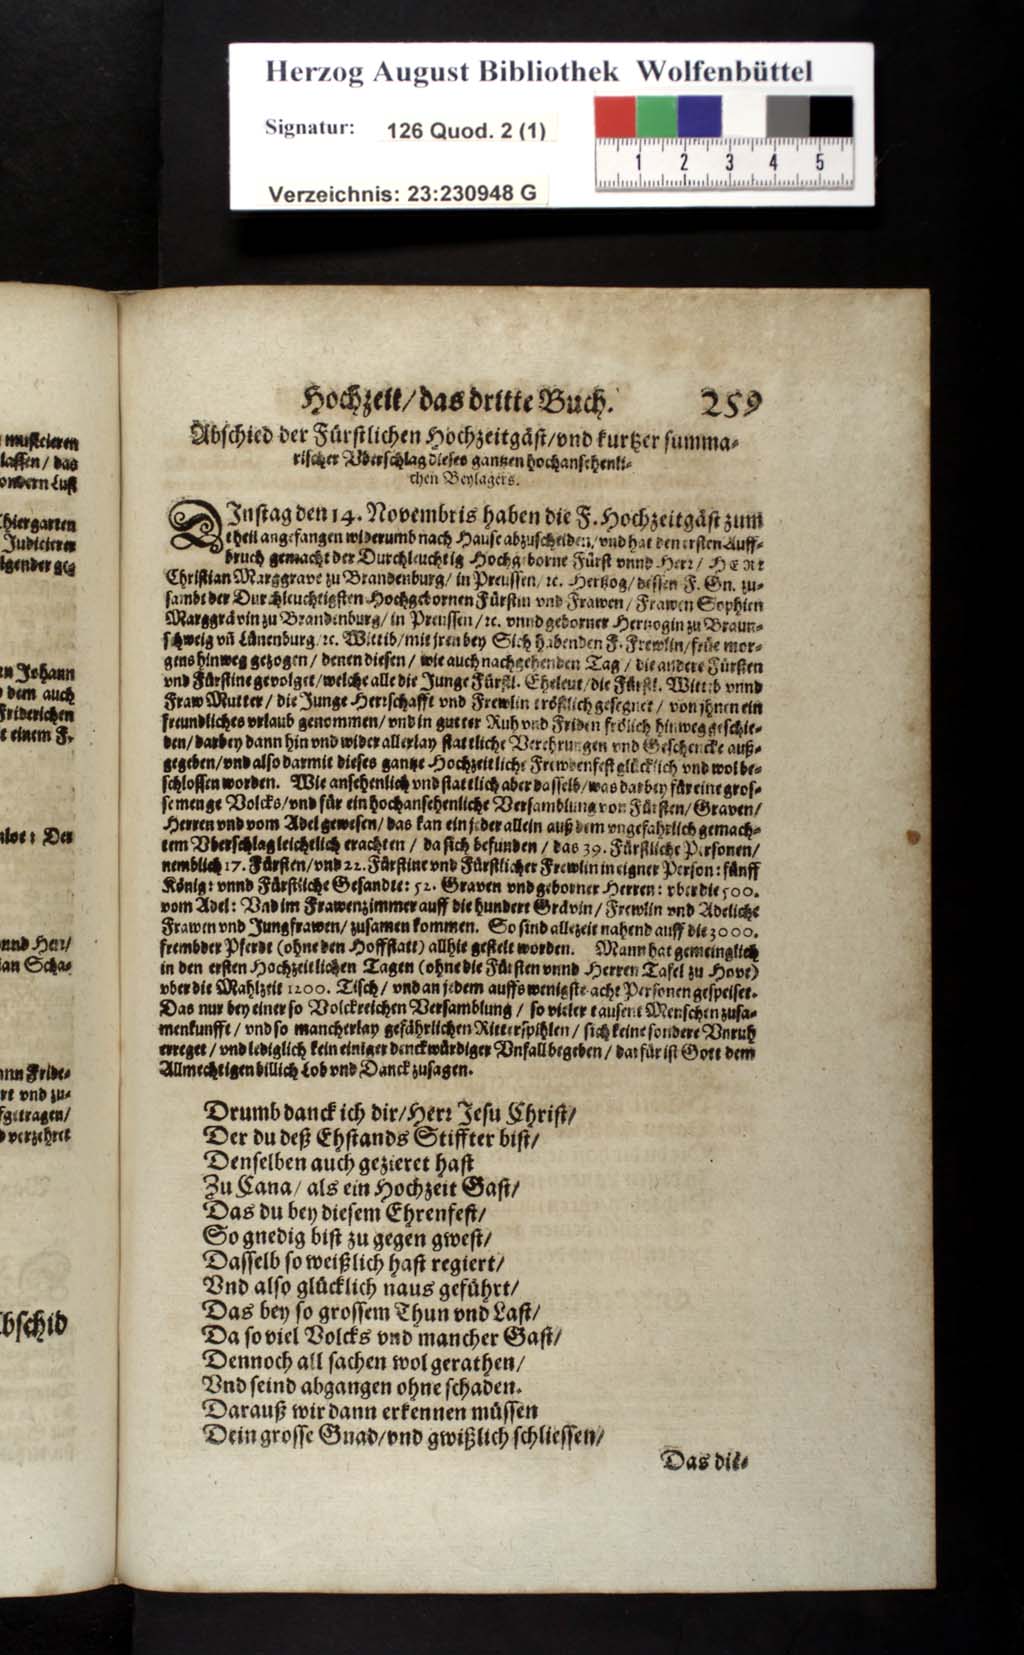 Herzog August Bibliothek Wolfenbüttel
Signatur: 126 Quod. 2 (1)
1 2 3 4 5
Verzeichnis: 23:230948 G
musicieren
lassen/ das
sondern Lust
Thiergarten
Judicierer
Johann
dem auch
Friderichen
t einem F.
Der
vnnd Herr/
ian Scha-
Fride-
vnd zu-
fgetragen/
verzehret
Abschid
Hochzeit/das dritte Buch. 259
Abschied der Fürstlichen Hochzeitgäst/vnd kurtzer summa-
rischer Vberschlag dieses gantzen hochansehenli-
chen Beylagers.
DInstag den 14. Novembris haben die F. Hochzeitgäst zum
theil angefangen widerumb nach Hause abzuscheiden/vnd hat den ersten Auff-
bruch gemacht der Durchleuchtig Hochgeborne Fürst vnnd Herr/ HERR
Christian Marggrave zu Brandenburg/ in Preussen/ ꝛc. Hertzog/ dessen F. Gn. zu-
sambt der Durchleuchtigsten Hochgebornen Fürstin vnd Frawen/ Frawen Sophien
Marggrävin zu Brandenburg/ in Preussen/ ꝛc. vnnd geborner Hertzogin zu Braun-
schweig vñ Lünenburg/ꝛc. Wittib/mit jren bey Sich habenden F. Frewlin/früe mor-
gens hinweg gezogen/ denen diesen/ wie auch nachgehenden Tag/ die andere Fürsten
vnd Fürstine gevolget/welche alle die Junge Fürstl. Eheleut/die Fürstl. Wittib vnnd
Fraw Mutter/ die Junge Herrschafft vnd Frewlin tröstlich gesegnet/ von jhnen ein
freundliches vrlaub genommen/vnd in gutter Ruh vnd Friden frölich hinweg geschie-
den/darbey dann hin vnd wider allerlay stattliche Verehrungen vnd Geschencke auß-
gegeben/vnd also darmit dieses gantze Hochzeitliche Frewdenfest glücklich vnd wol be-
schlossen worden. Wie ansehenlich vnd stattlich aber dasselb/was darbey für eine gros-
se menge Volcks/vnd für ein hochansehenliche Versamblung von Fürsten/Graven/
Herren vnd vom Adel gewesen/das kan ein jeder allein auß dem vngefährlich gemach-
tem Vberschlag leichtlich erachten/ da sich befunden/ das 39. Fürstliche Personen/
nemblich 17. Fürsten/vnd 22. Fürstine vnd Fürstlicher Frewlin in eigner Person: fünff
König: vnnd Fürstliche Gesandte: 52. Graven vnd geborner Herren: vber die 500.
vom Adel: Vnd im Frawenzimmer auff die hundert Grävin/ Frewlin vnd Adeliche
Frawen vnd Jungfrawen/ zusamen kommen. So sind allezeit nahend auff die 3000.
frembder Pferdt (ohne den Hoffstatt) allhie gestelt worden. Mann hat gemeinglich
in den ersten Hochzeitlichen Tagen (ohne die Fürsten vnnd Herren Tafel zu Hove)
vber die Mahlzeit 1200. Tisch/ vnd an jedem auffs wenigste acht Personen gespeiset.
Das nur bey einer so Volckreichen Versamblung/ so vieler tausent Menschen zusa-
menkunfft/ vnd so mancherlay gefährlichen Ritterspihlen/ sich keine sondere Vnruh
erreget/ vnd lediglich kein einiger denckwürdiger Vnfall begeben/ dar für ist Gott dem
Allmechtigen billich Lob vnd Danck zusagen.
Drumb danck ich dir/Herr Jesu Christ/
Der du deß Ehstands Stiffter bist/
Denselben auch gezieret hast
Zu Cana/ als ein Hochzeit Gast/
Das du bey diesem Ehrenfest/
So gnedig bist zu gegen gwest/
Dasselb so weißlich hast regiert/
Vnd also glücklich naus geführt/
Das bey so grossem Thun vnd Last/
Da so viel Volcks vnd mancher Gast/
Dennoch all sachen wol gerathen/
Vnd seind abgangen ohne schaden.
Darauß wir dann erkennen müssen
Dein grosse Gnad/vnd gwißlich schliessen/
Das die-